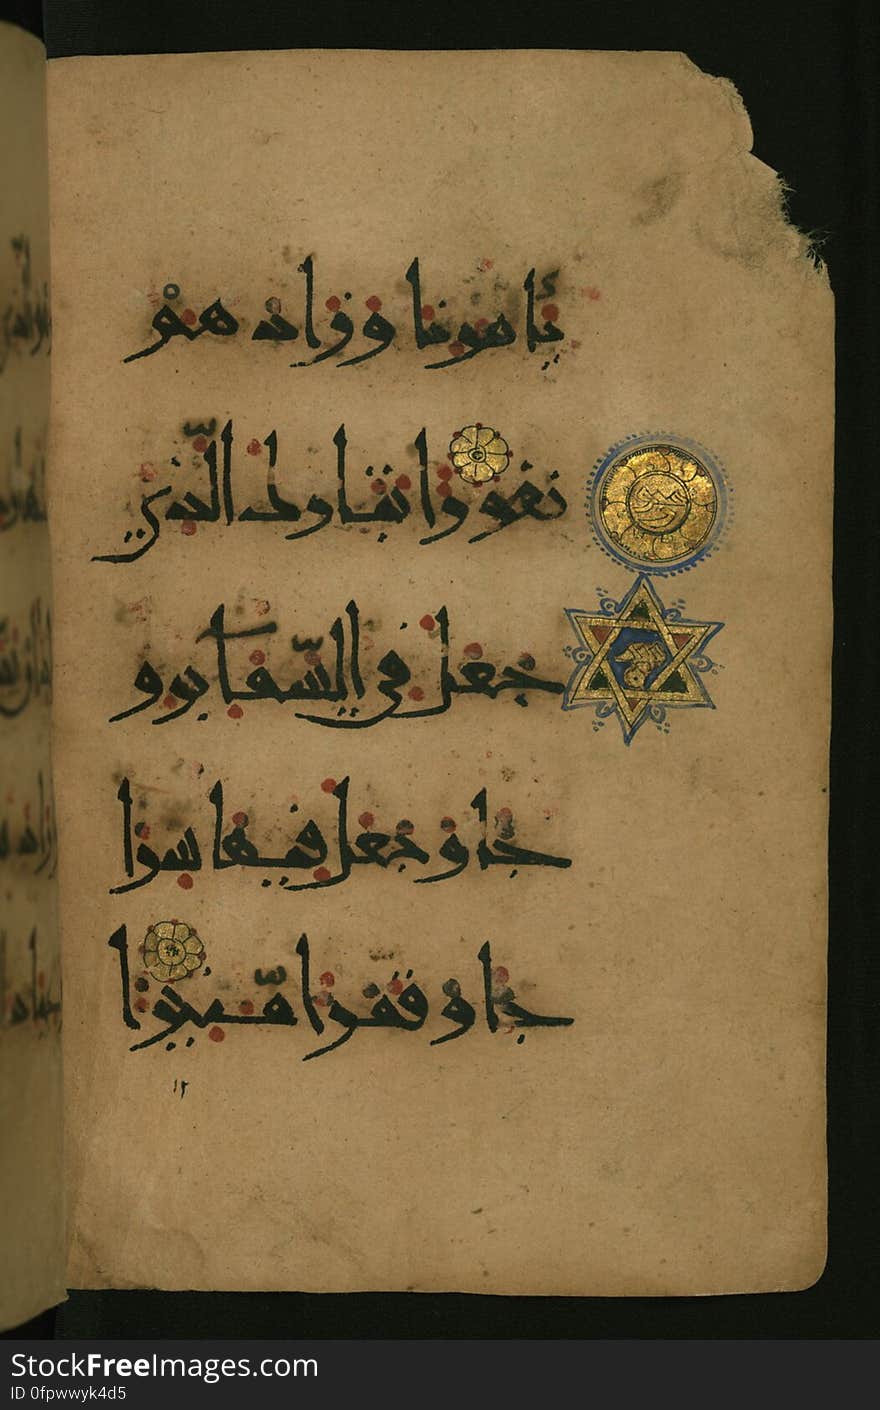 تَأْمُرُنَا وَزَادَهُمْ
نُفُورًا تَبَارَكَ الَّذِي
جَعَلَ فِي السَّمَآءِ بُرُو
جًا وَجَعَلَ فِيهَا سِرَا
جًا وَقَمَرًا مُّنِيرًا
١٢
StockFreeImages.com
ID 0fpwwyk4d5